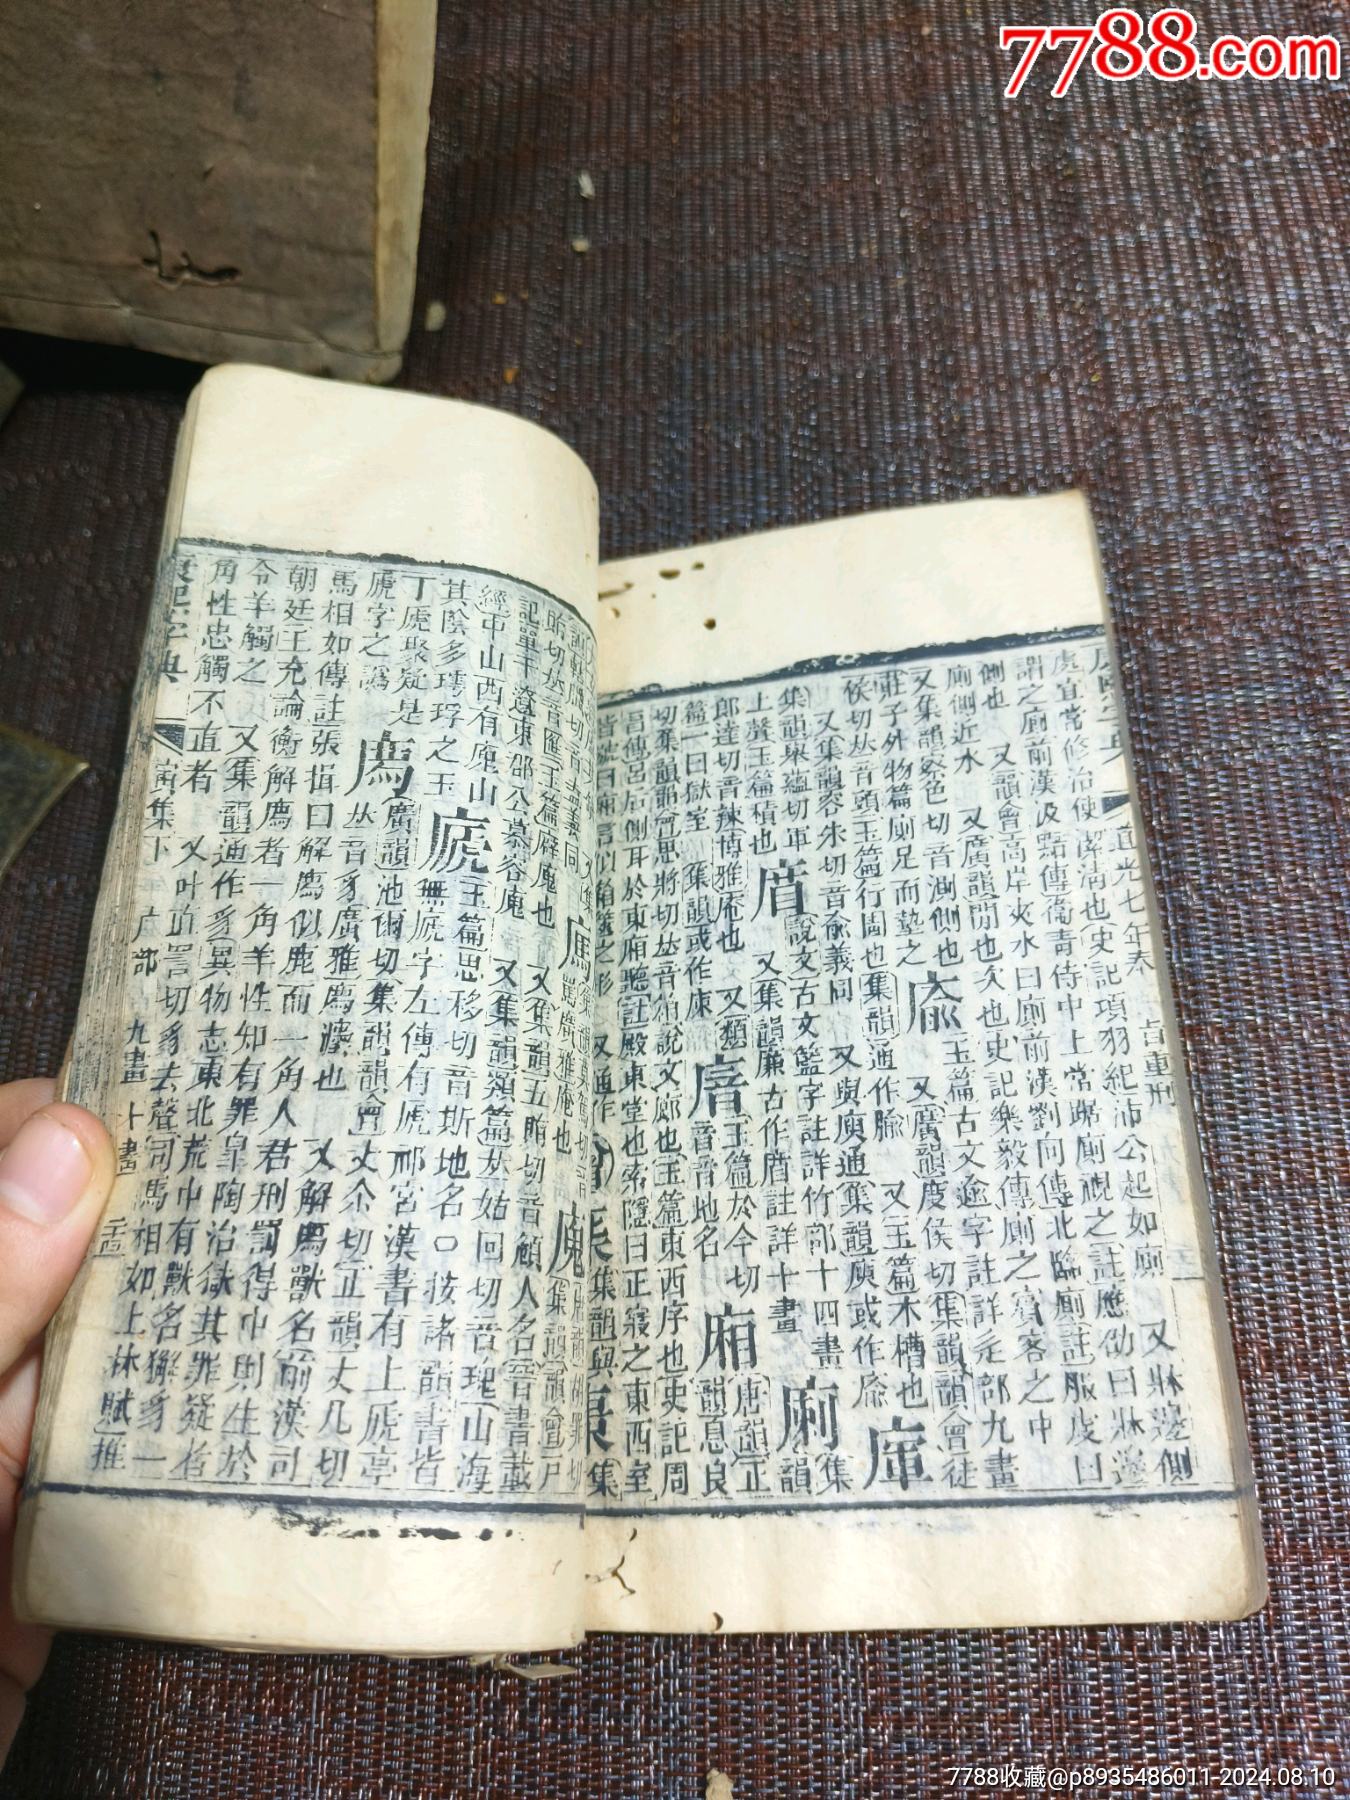 7788.com
道光七年奉 旨重刊
虔宜常修治使潔清也史記項羽紀沛公起如廁 又牀邊側
謂之廁前漢汲黯傳衞靑侍中上常踞廁視之註應劭曰牀邊
側也 又韻會高岸夾水曰廁前漢劉向傳北臨廁註服虔曰
廁側近水 又廣韻閒也次也史記樂毅傳廁之賓客之中
又集韻察色切音測側也 廥 玉篇古文逾字註詳辵部九畫
莊子外物篇廁足而墊之
侯切𠀤音頭玉篇行圊也集韻通作腧 又玉篇木槽也
又集韻容朱切音兪義同 又與庾通集韻庾或作㢏
集韻舉蘊切軍
上聲玉篇積也 說文古文籃字註詳竹部十四畫
郎達切音辣博雅庵也 又集韻廉古作㡘註詳十畫
篇一曰獄室 集韻或作㓨
切集韻韻會思將切𠀤音箱說文廊也玉篇東西序也史記周
昌傳呂后側耳於東廂聽註殿東堂也索隱曰正寢之東西室
皆號曰廂言似箱篋之形
記單于遼東郡公慕容廆 又集韻五賄切音頠人名晉書載
經中山西有廆山 又集韻類篇𠀤姑回切音瑰山海
其陰多㻬琈之玉 㡯 玉篇思移切音斯地名○按諸韻書皆
丁虒聚疑是 無㡯字左傳有虒祁宮漢書有上虒亭
虒字之譌 廌 廣韻池爾切集韻韻會丈尒切正韻丈几切
馬相如傳註張揖曰解廌似鹿而一角人君刑罰得中則生於
朝廷王充論衡解廌者一角羊性知有罪皐陶治獄其罪疑者
令羊觸之 又集韻通作豸異物志東北荒中有獸名獬豸一
角性忠觸不直者 又叶直詈切豸去聲司馬相如上林賦推
康熙字典 寅集下 广部 九畫 十畫 二十四
7788收藏@p8935486011-2024.08.10